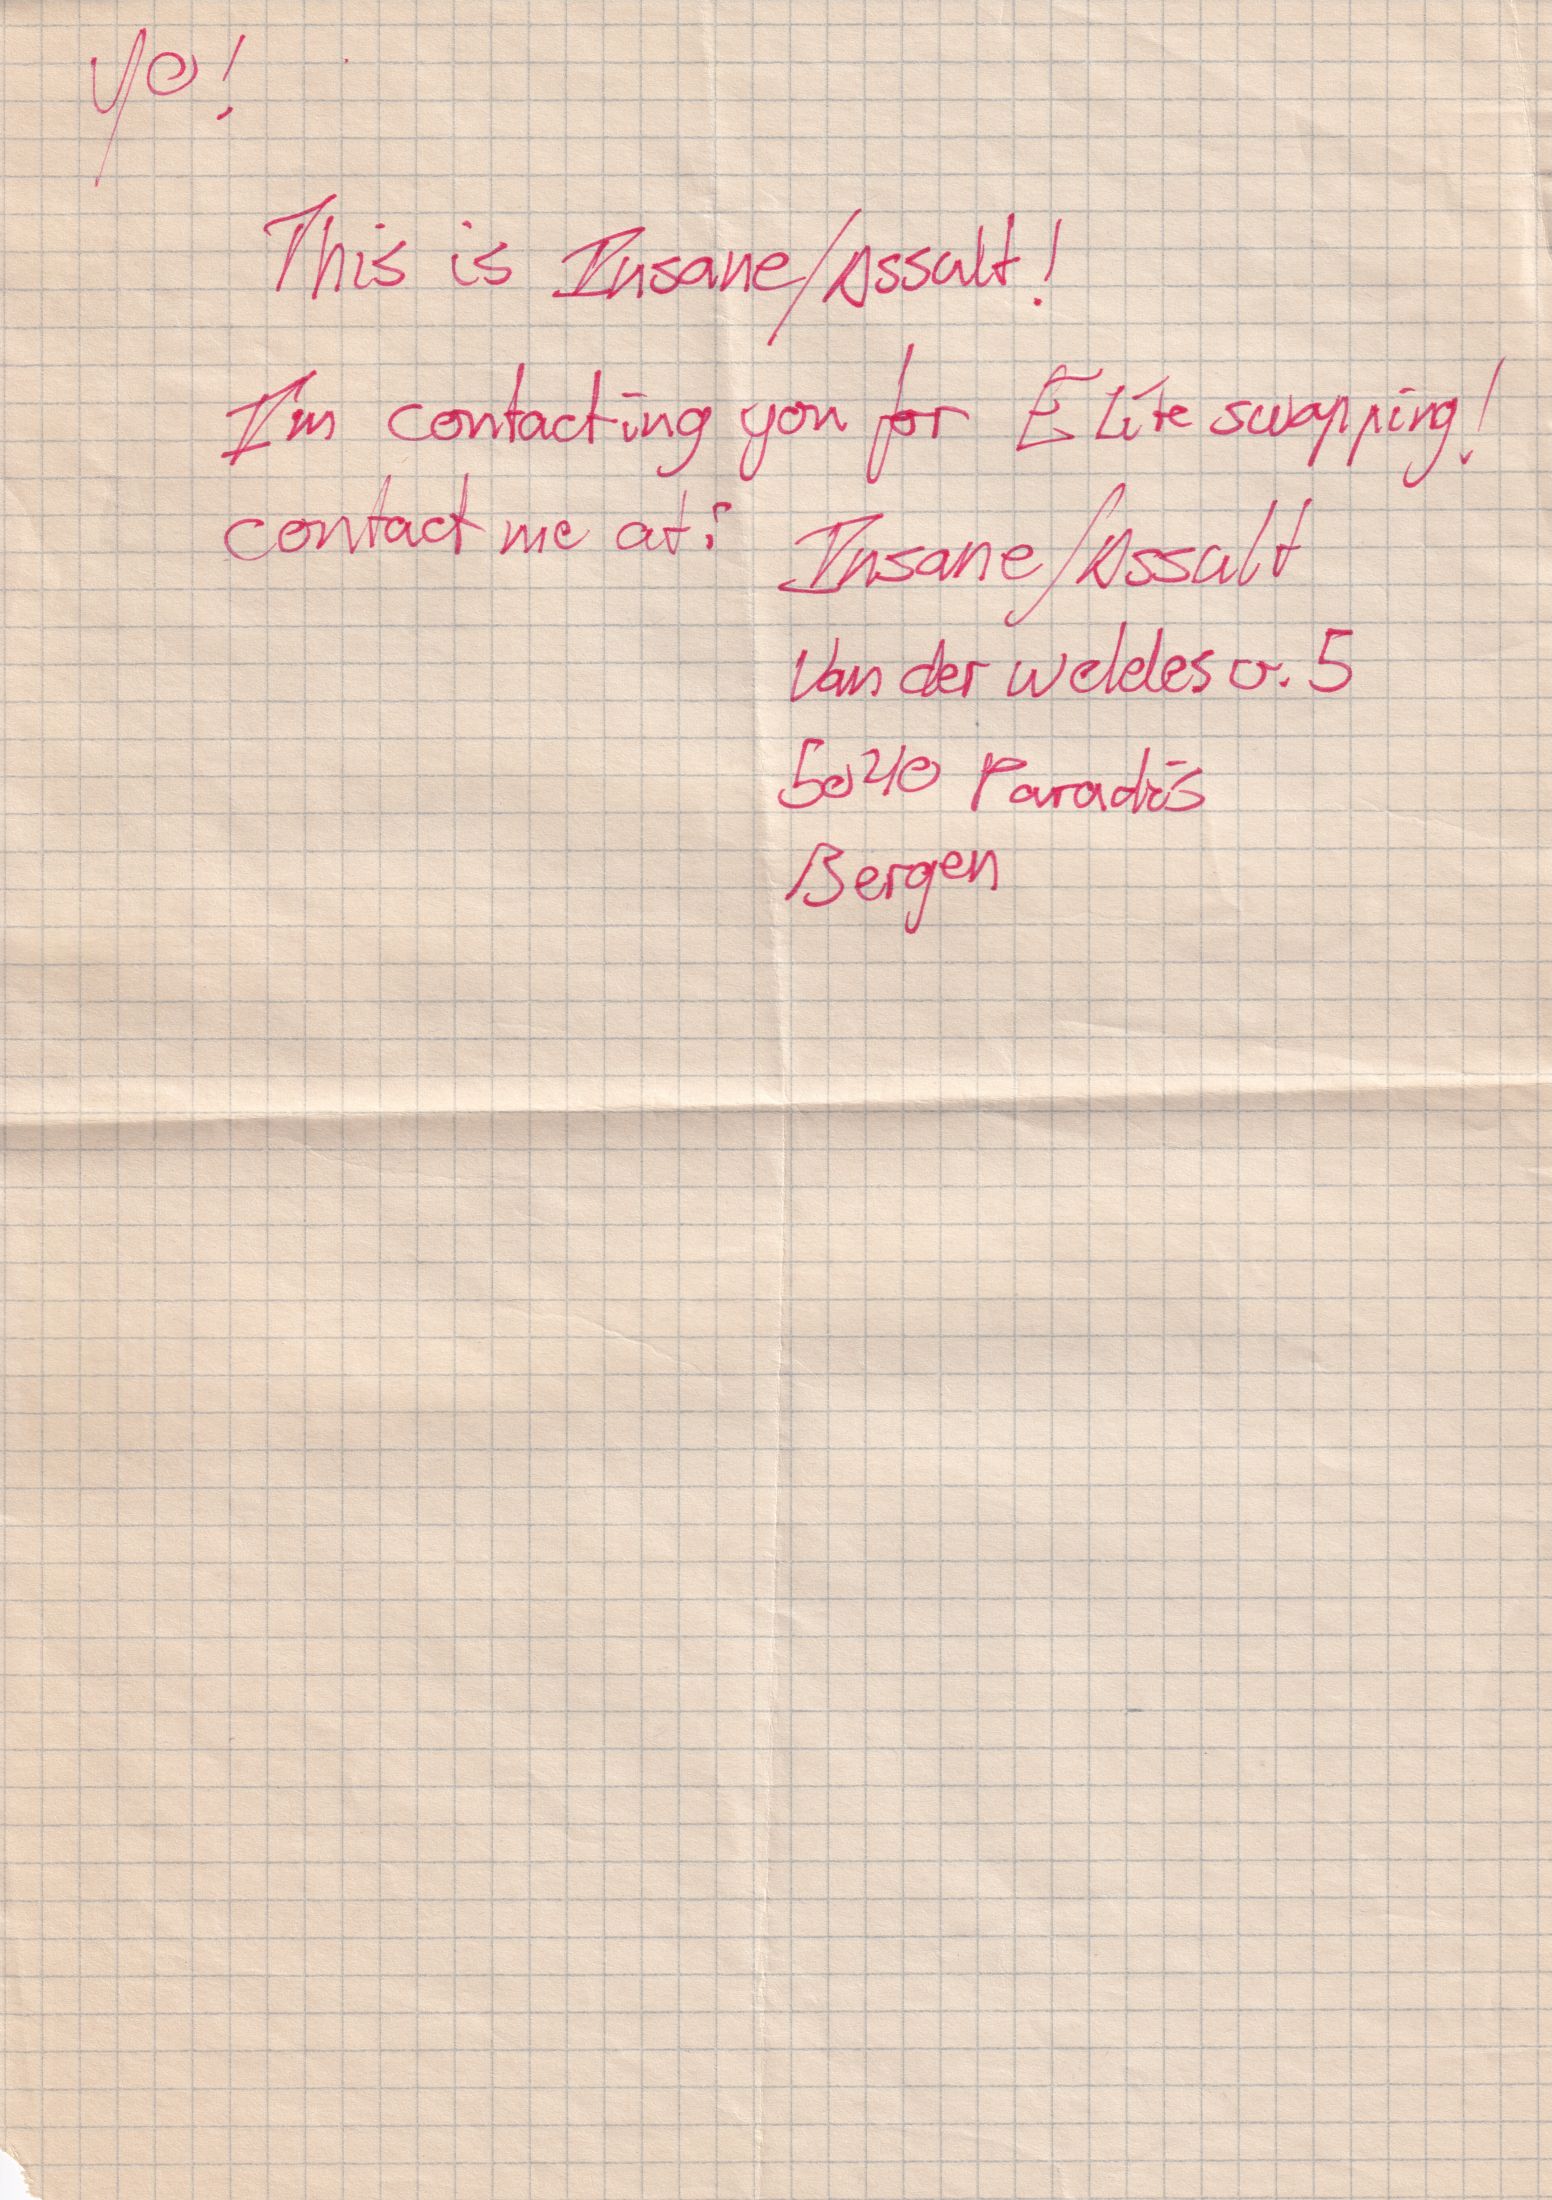 Yo!
This is Insane/Assalt!
I'm contacting you for Elite swapping!
contact me at:
Insane/Assalt
Van der weldes v. 5
5040 Paradis
Bergen